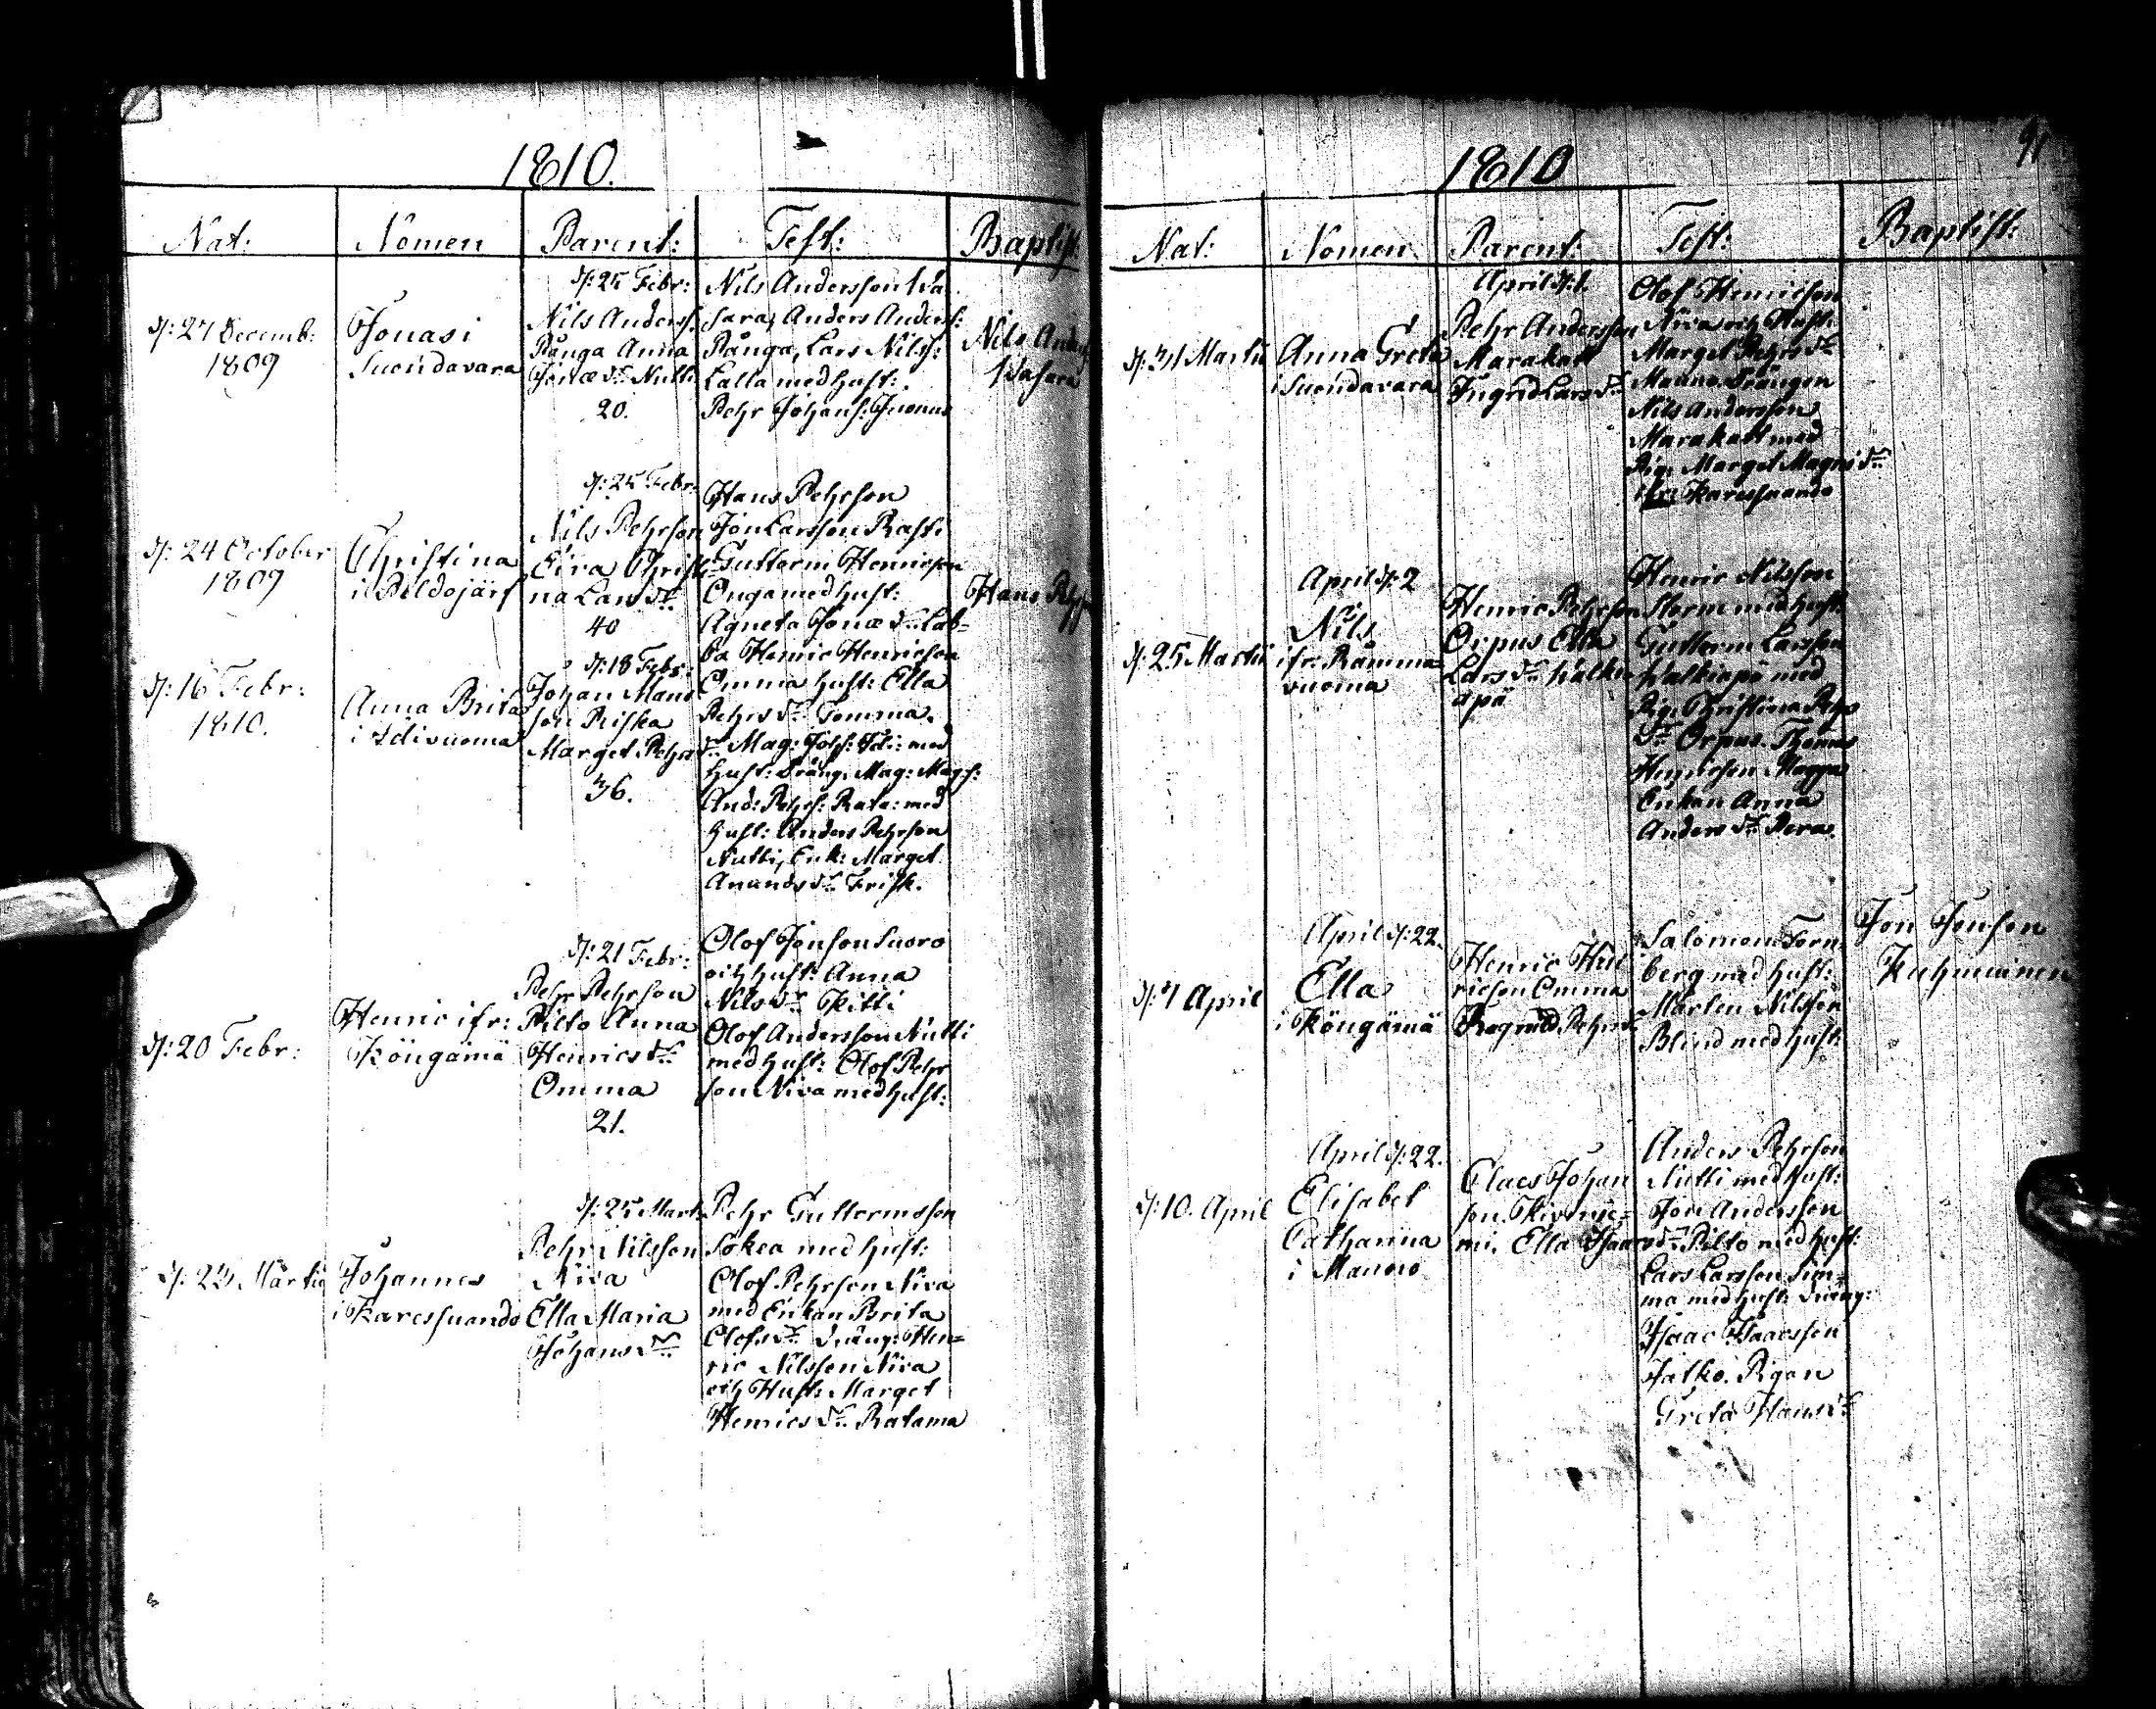 1810.
Nat: Nomen Parent: Test: Baptist:
d: 27 Decemb:
1809
Jonas i
Suondavara
d: 25 Febr:
Nils Anderss.
Pånga Anna
Jonæ dr Nutti
20.
Nils Andersson Va
sara, Anders Anderss:
Pånga, Lars Nilss:
Lalla med hust:
Pehr Johans:
Nils Anders
Vasara
d: 24 October
1809
Christina
i Peldojärf
d: 25 Febr:
Nils Pehrson
Eira Christi
na Lars dr
40
Hans Pehrson
Jon Larsson Rasti
Guttorm Henricson
Onga med hust:
Agneta Jonæ dr Lab=
ba Henric Henricson
Omma hust: Ella
Pehrs dr Tomma.
Hans Pehrs
d: 16 Febr:
1810.
Anna Brita
i Idivuoma
d: 18 Febr:
Johan Mans
son Riska
Marget Pehrs dr
36.
Mag: Joh: Idi: med
hust: Dräng. Mag: Mag:s:
And: Pehrs: Rata: med
hust: Anders Pehrson
Nutti, Enk: Marget
Amunds dr Frisk.
d: 20 Febr:
Henric ifr:
Köngämä
d: 21 Febr:
Pehr Pehrson
Pilto Anna
Henrics dr
Omma
21.
Olof Jonson Suoro
och hust: Anna
Nils dr Kitti
Olof Andersson Nutti
med hust: Olof Pehr
son Niva med hust:
d: 23 Martii
Johannes
i Karessuando
d: 25 Mart:
Pehr Nilsson
Niva
Ella Maria
Johans dr
Pehr Guttormsson
Sokea med hust:
Olof Pehrson Niva
med Enkan Brita
Olofs dr Dräng: Hen=
ric Nilsson Niva
och Hust: Marget
Henrics dr Ratama
1810
91
Nat: Nomen Parent: Test: Baptist:
d: 31 Martii
Anna Greta
i Suondavara
April d: 1.
Pehr Andersson
Marakatt
Ingrid Lars dr
Olof Henricson
Niva och Hust:
Marget Pehrs dr
Mauno Drängen
Nils Andersson
Marakatt med
Pig: Marget Magni dr
ifr: Karessuando
d: 25 Martii
April d: 2
Nils
ifr: Råmma
vuoma
Henric Pehrson
Orpus Ella
Lars dr Walkia
apä
Henric Nilsson
Storm med hust:
Guttorm Larsson
Walkiapä med
Pig. Christina Pehrs
dr Orpus. Thomas
Henricson Magga
Enkan Anna
Anders dr Pera.
d: 7 April
April d: 22.
Ella
i Köngämä
Henric Hen
ricson Omma
Ragnild Pehrs dr
Salomon Torn
berg med hust:
Marten Nilsson
Blind med hust:
Jon Jonson
Kuhmuinen
d: 10. April
April d: 22.
Elisabet
Catharina
i Mauno
Claes Johan
son. Kivinie=
mi. Ella Isaacs dr
Anders Pehrson
Nutti med hust:
Jon Andersson
Pilto med hust:
Lars Larsson Sim=
ma med hust: Dräng:
Isaac Isaacsson
Jatko. Pigan
Greta Hans dr